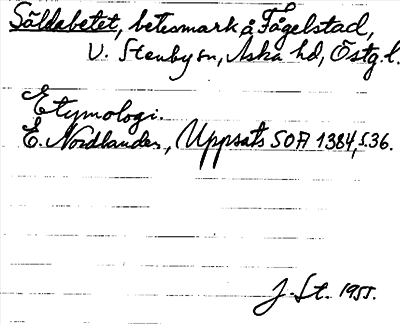 Säldabetet, betesmark å Fågelstad,
V. Stenby sn, Aska hd, Östg. l.
Etymologi.
E. Nordlander, Uppsats SOA 1384, s. 36.
J. St. 1955.